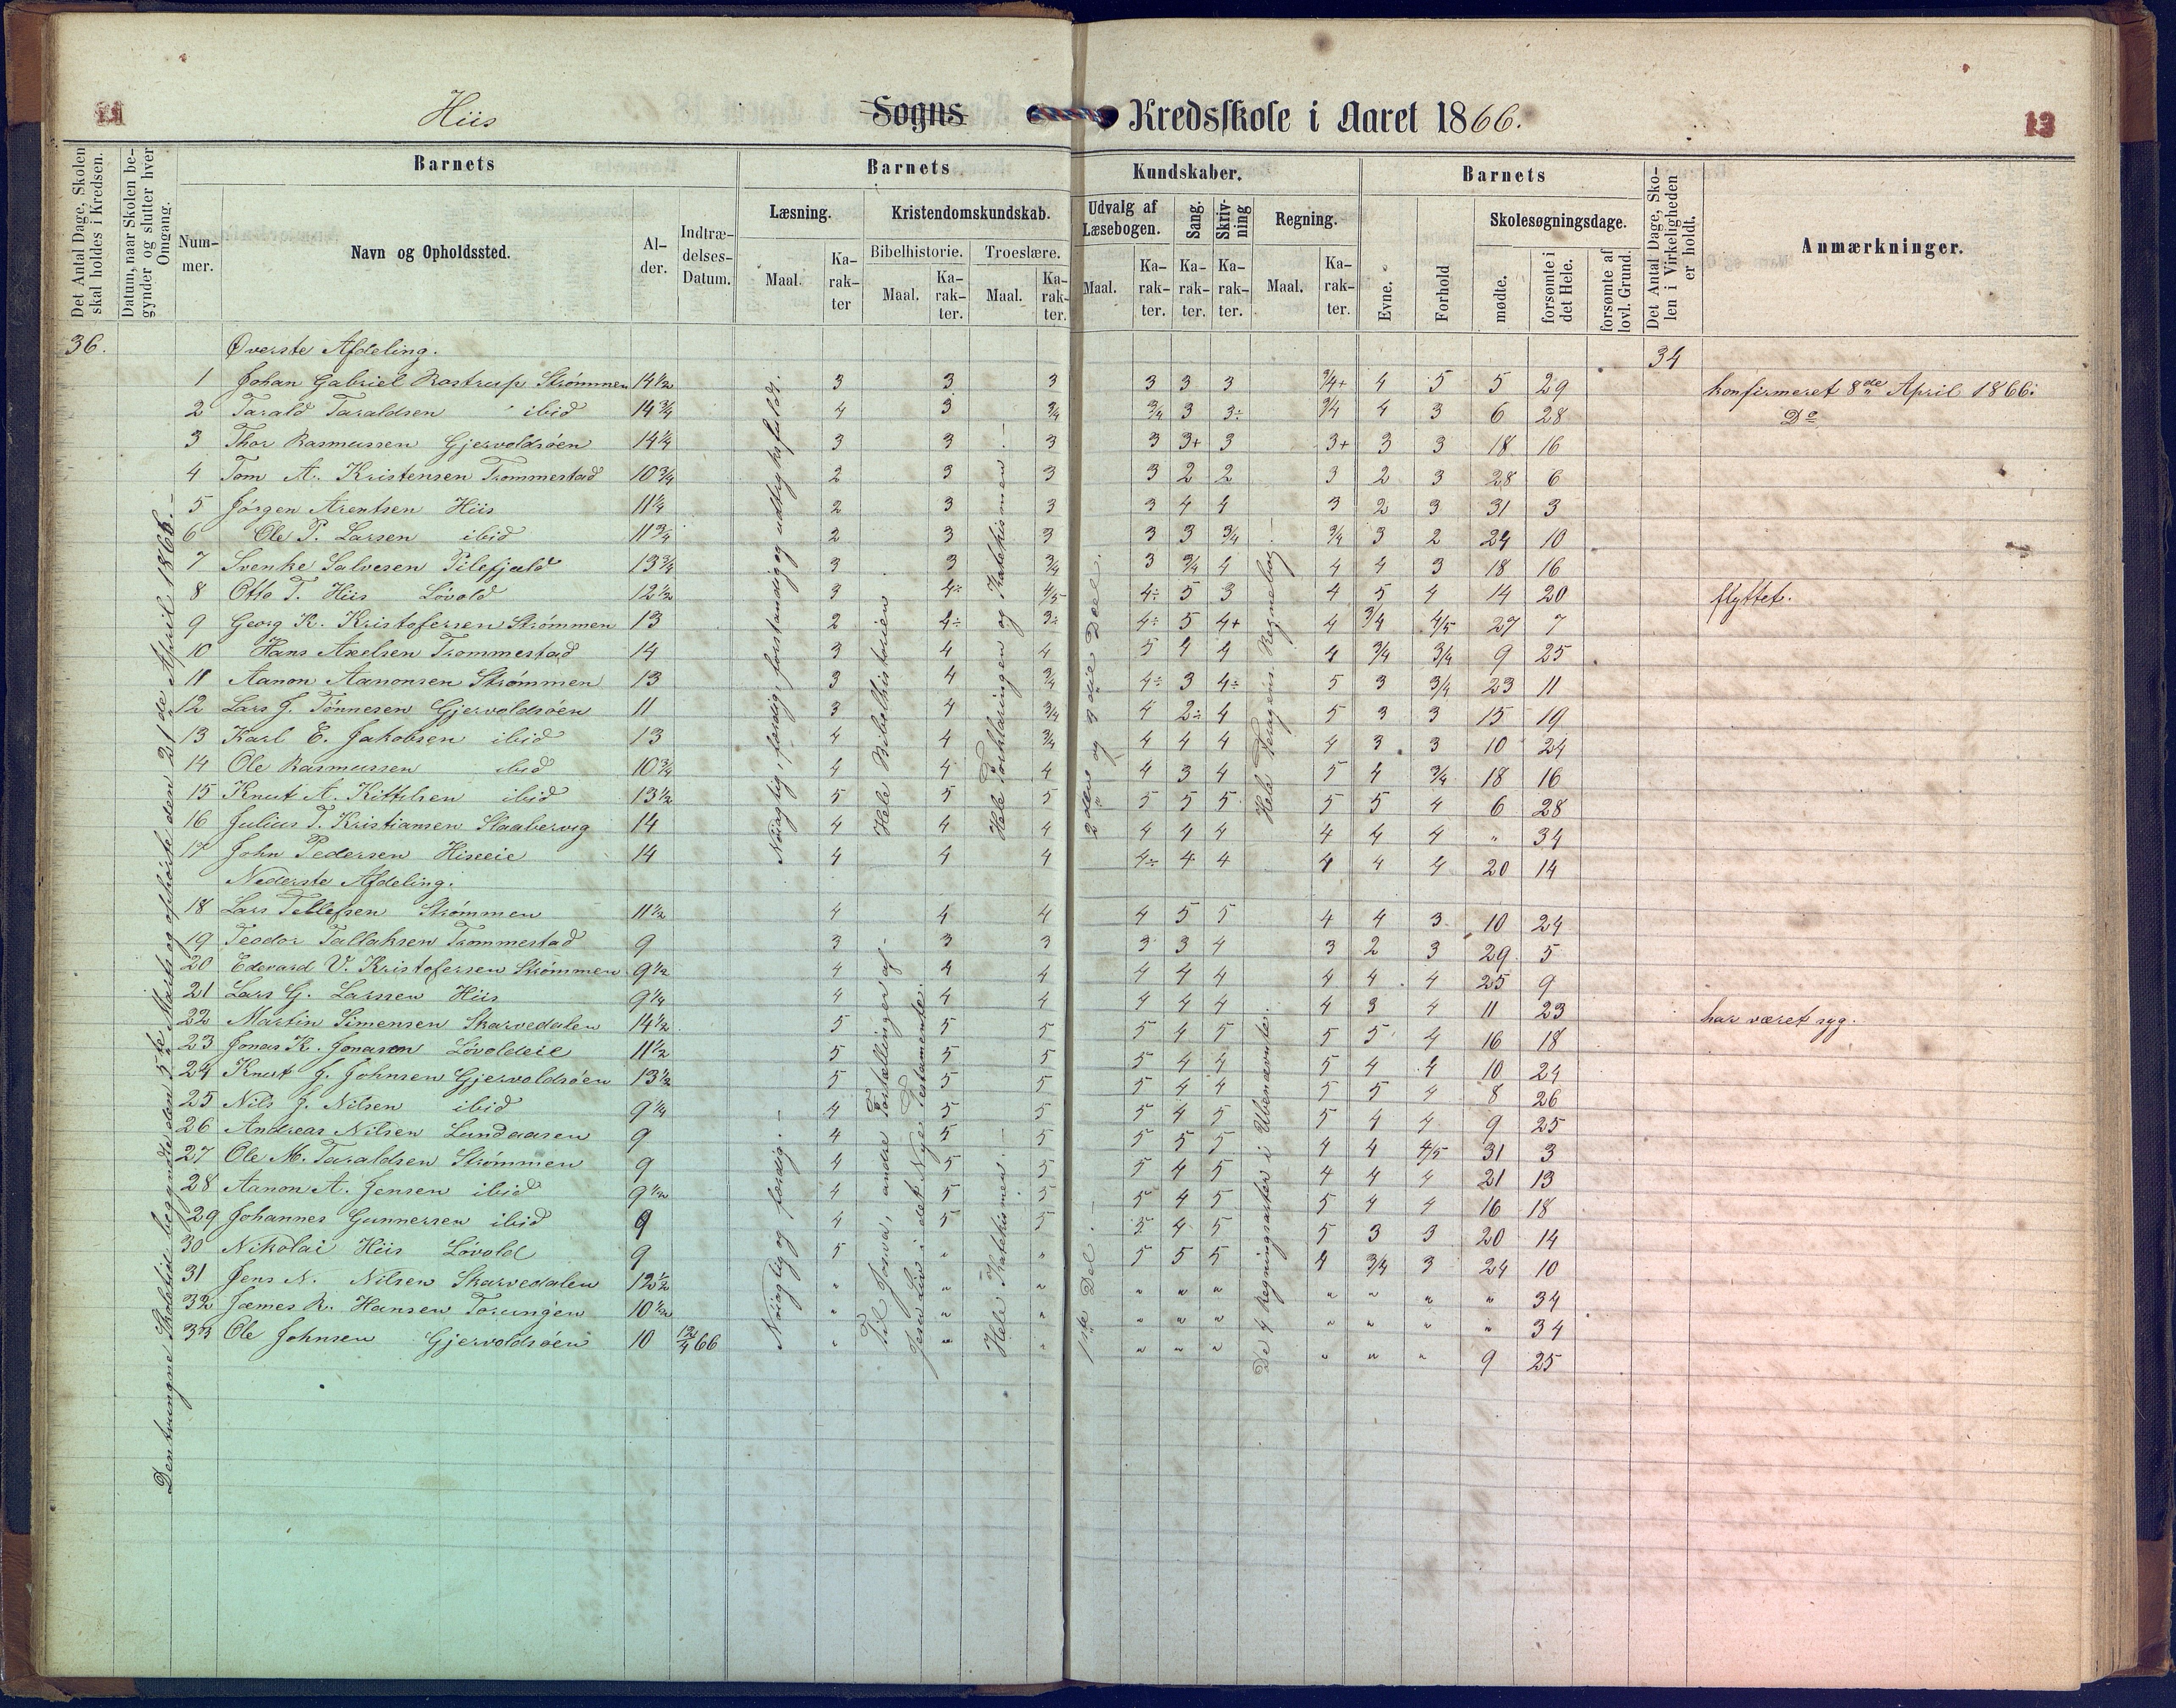 11
Hiis Sogns Kredsskole i Aaret 1866.
13
Det Antal Dage, Skolen skal holdes i Kredsen.
Datum, naar Skolen begynder og slutter hver Omgang.
Barnets
Barnets
Kundskaber.
Barnets
Det Antal Dage, Skolen i Virkeligheden er holdt.
Anmærkninger.
Nummer.
Navn og Opholdssted.
Alder.
Indtrædelses-Datum.
Læsning.
Kristendomskundskab.
Udvalg af Læsebogen.
Sang.
Skrivning
Regning.
Evne.
Forhold
Skolesøgningsdage.
Bibelhistorie.
Troeslære.
Maal.
Karakter
Maal.
Karakter.
Maal.
Karakter.
Maal.
Karakter.
Karakter.
Karakter.
Maal.
Karakter.
mødte.
forsømte i det Hele.
forsømte af lovl. Grund.
36.
Den tvungne Skoletid begyndte den 5te Marts og ophørte den 21de April 1866.
Nøiagtig, færdig, forstandig og udtryksfuldt.
Hele Bibelhistorien
Hele Forklaringen og Katekismen.
2den og 3die Deel.
Hele Regnebog.
34
Øverste Afdeling.
1 Johan Gabriel Rostrup Strømmen 14½ 3 3 3 3 3 3 3/4+ 4 5 5 29 konfirmeret 8de April 1866.
2 Tarald Taraldsen ibid 14¾ 4 3 3/4 3/4 3 3÷ 3/4 4 3 6 28 Do
3 Thor Rasmussen Gjervoldsøen 14¼ 3 3 3 3 3+ 3 3+ 3 3 18 16
4 Tom A. Kristensen Trommestad 10¾ 2 3 3 3 2 2 3 2 3 28 6
5 Jørgen Arentsen Hiis 11¼ 2 3 3 3 4 4 3 2 3 31 3
6 Ole P. Larsen ibid 11¾ 2 3 3 3 3 3/4 3/4 3 2 24 10
7 Svenke Salvesen Pilefjeld 13¾ 3 3 3/4 3 3/4 4 4 4 3 18 16
8 Otto T. Hiis Løvold 12½ 3 4÷ 4/5 4÷ 5 3 4 5 4 14 20 flyttet.
9 Georg K. Kristofersen Strømmen 13 2 4÷ 3÷ 4÷ 5 4+ 4 3/4 4/5 27 7
10 Hans Axelsen Trommestad 14 3 4 4 5 4 4 4 3/4 3/4 9 25
11 Aanon Aanonsen Strømmen 13 3 4 3/4 4÷ 3 4÷ 5 3 3/4 23 11
12 Lars J. Tønnesen Gjervoldsøen 11 3 4 3/4 4 2÷ 4 5 3 3 15 19
13 Karl E. Jakobsen ibid 13 4 4 3/4 4 4 4 4 3 3 10 24
14 Ole Rasmussen ibid 10¾ 4 4 4 4 3 4 5 4 3/4 18 16
15 Knut A. Kittelsen ibid 13½ 5 5 5 5 5 5 5 5 4 6 28
16 Julius T. Kristiansen Slaabervig 14 4 4 4 4 4 4 4 4 4 " 34
17 John Pedersen Hiseeie 14 4 4 4 4÷ 4 4 4 4 4 20 14
Nederste Afdeling.
Nøiagtig og færdig.
Til Josva, andre Fortællinger af Jesu Liv i det Nye Testamente.
Hele Katekismen.
1ste Del.
De 4 Regningsarter i Ubenævnte.
18 Lars Tellefsen Strømmen 11½ 4 4 4 4 5 5 4 4 3 10 24
19 Teodor Tallaksen Trommestad 9 3 3 3 3 3 4 3 2 3 29 5
20 Edevard V. Kristofersen Strømmen 9½ 4 4 4 4 4 4 4 4 4 25 9
21 Lars G. Larssen Hiis 9¼ 4 4 4 4 4 4 4 3 4 11 23 har været syg.
22 Martin Simensen Skarvedalen 14½ 5 5 5 5 4 5 5 5 4 16 18
23 Jonas K. Jonassen Løvoldeie 11½ 5 5 5 5 4 4 5 4 4 10 24
24 Knut J. Johnsen Gjervoldsøen 13½ 5 5 5 5 4 4 5 5 4 8 26
25 Nils J. Nilsen ibid 9¼ 4 5 5 5 4 5 5 4 4 9 25
26 Andreas Nilsen Lundaasen 9 4 5 5 5 5 5 4 4 4/5 31 3
27 Ole M. Taraldsen Strømmen 9 4 5 5 5 4 5 4 4 4 21 13
28 Aanon A. Jensen ibid 9½ 4 5 5 5 4 5 5 4 4 16 18
29 Johannes Gunnersen ibid 9 4 5 5 5 4 5 5 3 3 20 14
30 Nikolai Hiis Løvold 9 5 " " 5 5 5 4 3/4 3 24 10
31 Jens N. Nilsen Skarvedalen 12½ " " " " " " " " " " 34
32 Jæmes R. Hansen Torungen 10½ " " " " " " " " " " 34
33 Ole Johnsen Gjervoldsøen 10 12/4 66 " " " " " " " " " 9 25